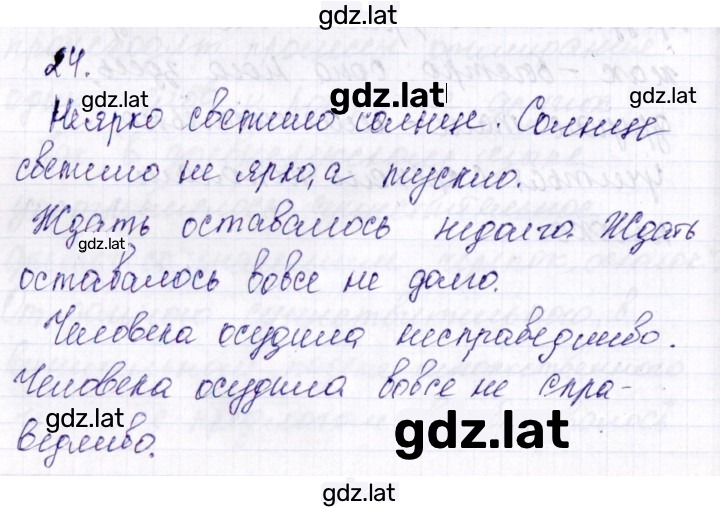 gdz.lat
24.
gdz.lat gdz.lat gdz.lat
Неярко светило солнце. Солнце
светило не ярко, а тускло.
Ждать оставалось недолго. Ждать
gdz.lat
оставалось вовсе не долго.
Человека осудила несправедливо.
Человека осудила вовсе не спра-
gdz.lat gdz.lat
ведливо.
gdz.lat